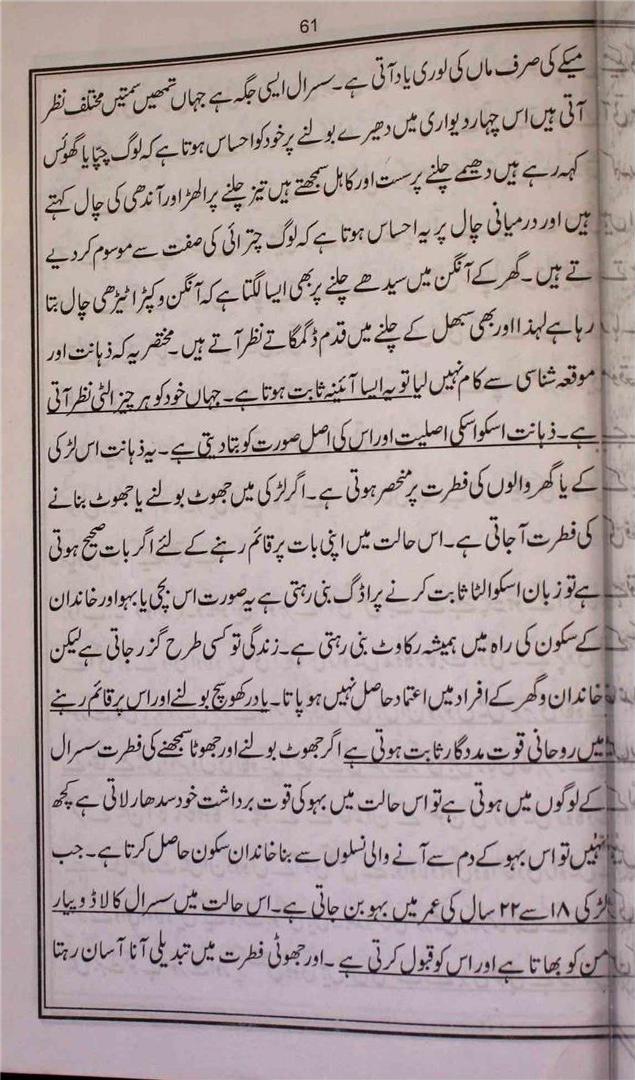 61
میکے کی صرف ماں کی لوری یاد آتی ہے۔ سسرال ایسی جگہ ہے جہاں تمھیں سمتیں مختلف نظر
آتی ہیں اس چہار دیواری میں دھیرے بولنے پر خود کو احساس ہوتا ہے کہ لوگ چپّا یا گھوئس
کہہ رہے ہیں دھیمے چلنے پر سست اور کاہل سمجھتے ہیں تیز چلنے پر الھڑ اور آندھی کی چال کہتے
ہیں اور درمیانی چال پر یہ احساس ہوتا ہے کہ لوگ چترائی کی صفت سے موسوم کر دیے
تے ہیں۔ گھر کے آنگن میں سیدھے چلنے پر بھی ایسا لگتا ہے کہ آنگن و کپڑا ٹیڑھی چال بتا
رہا ہے لہذا اور بھی سبھل کے چلنے میں قدم ڈگمگاتے نظر آتے ہیں۔ مختصر یہ کہ ذہانت اور
موقعہ شناسی سے کام نہیں لیا تو یہ ایسا آئینہ ثابت ہوتا ہے۔ جہاں خود کو ہر چیز الٹی نظر آتی
ہے۔ ذہانت اسکو اسکی اصلیت اور اس کی اصل صورت کو بتا دیتی ہے۔ یہ ذہانت اس لڑکی
کے یا گھر والوں کی فطرت پر منحصر ہوتی ہے۔ اگر لڑکی میں جھوٹ بولنے یا جھوٹ بنانے
کی فطرت آ جاتی ہے۔ اس حالت میں اپنی بات پر قائم رہنے کے لئے اگر بات صحیح ہوتی
ہے تو زبان اسکو الٹا ثابت کرنے پر اڈگ بنی رہتی ہے یہ صورت اس بچی یا بہو اور خاندان
کے سکون کی راہ میں ہمیشہ رکاوٹ بنی رہتی ہے۔ زندگی تو کسی طرح گزر جاتی ہے لیکن
خاندان و گھر کے افراد میں اعتماد حاصل نہیں ہو پاتا۔ یاد رکھو سچ بولنے اور اس پر قائم رہنے
میں روحانی قوت مددگار ثابت ہوتی ہے اگر جھوٹ بولنے اور جھوٹا سمجھنے کی فطرت سسرال
کے لوگوں میں ہوتی ہے تو اس حالت میں بہو کی قوت برداشت خود سدھار لاتی ہے کچھ
نہیں تو اس بہو کے دم سے آنے والی نسلوں سے بنا خاندان سکون حاصل کرتا ہے۔ جب
لڑکی ۱۸ سے ۲۲ سال کی عمر میں بہو بن جاتی ہے۔ اس حالت میں سسرال کا لاڈ و پیار
من کو بھاتا ہے اور اس کو قبول کرتی ہے۔ اور جھوٹی فطرت میں تبدیلی آنا آسان رہتا